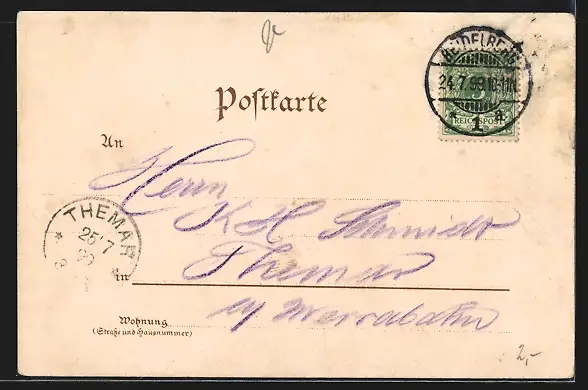 HEIDELBERG
24.7.99.10-11V.
* 1 a
REICHSPOST
Postkarte
An
Herrn
K H Schmidt
THEMAR
25 7
in Themar
Werrabahn
Wohnung
(Straße und Hausnummer)
2,-